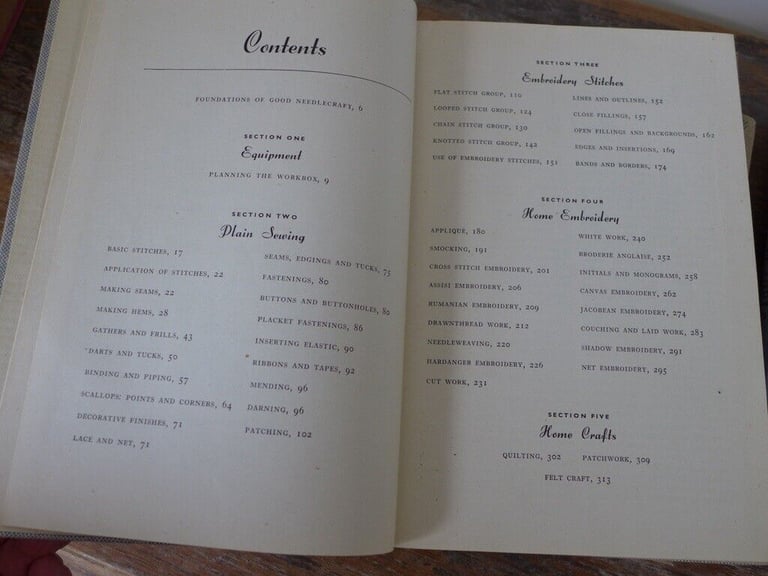 Contents
FOUNDATIONS OF GOOD NEEDLECRAFT, 6
SECTION ONE
Equipment
PLANNING THE WORKBOX, 9
SECTION TWO
Plain Sewing
BASIC STITCHES, 17
APPLICATION OF STITCHES, 22
MAKING SEAMS, 22
MAKING HEMS, 28
GATHERS AND FRILLS, 43
DARTS AND TUCKS, 50
BINDING AND PIPING, 57
SCALLOPS: POINTS AND CORNERS, 64
DECORATIVE FINISHES, 71
LACE AND NET, 71
SEAMS, EDGINGS AND TUCKS, 75
FASTENINGS, 80
BUTTONS AND BUTTONHOLES, 80
PLACKET FASTENINGS, 86
INSERTING ELASTIC, 90
RIBBONS AND TAPES, 92
MENDING, 96
DARNING, 96
PATCHING, 102
SECTION THREE
Embroidery Stitches
FLAT STITCH GROUP, 119
LOOPED STITCH GROUP, 124
CHAIN STITCH GROUP, 130
KNOTTED STITCH GROUP, 142
USE OF EMBROIDERY STITCHES, 151
LINES AND OUTLINES, 152
CLOSE FILLINGS, 157
OPEN FILLINGS AND BACKGROUNDS, 162
EDGES AND INSERTIONS, 169
BANDS AND BORDERS, 174
SECTION FOUR
Home Embroidery
APPLIQUE, 180
SMOCKING, 191
CROSS STITCH EMBROIDERY, 201
ASSISI EMBROIDERY, 206
RUMANIAN EMBROIDERY, 209
DRAWNTHREAD WORK, 212
NEEDLEWEAVING, 220
HARDANGER EMBROIDERY, 226
CUT WORK, 231
WHITE WORK, 240
BRODERIE ANGLAISE, 252
INITIALS AND MONOGRAMS, 258
CANVAS EMBROIDERY, 262
JACOBEAN EMBROIDERY, 274
COUCHING AND LAID WORK, 283
SHADOW EMBROIDERY, 291
NET EMBROIDERY, 295
SECTION FIVE
Home Crafts
QUILTING, 302 PATCHWORK, 309
FELT CRAFT, 313